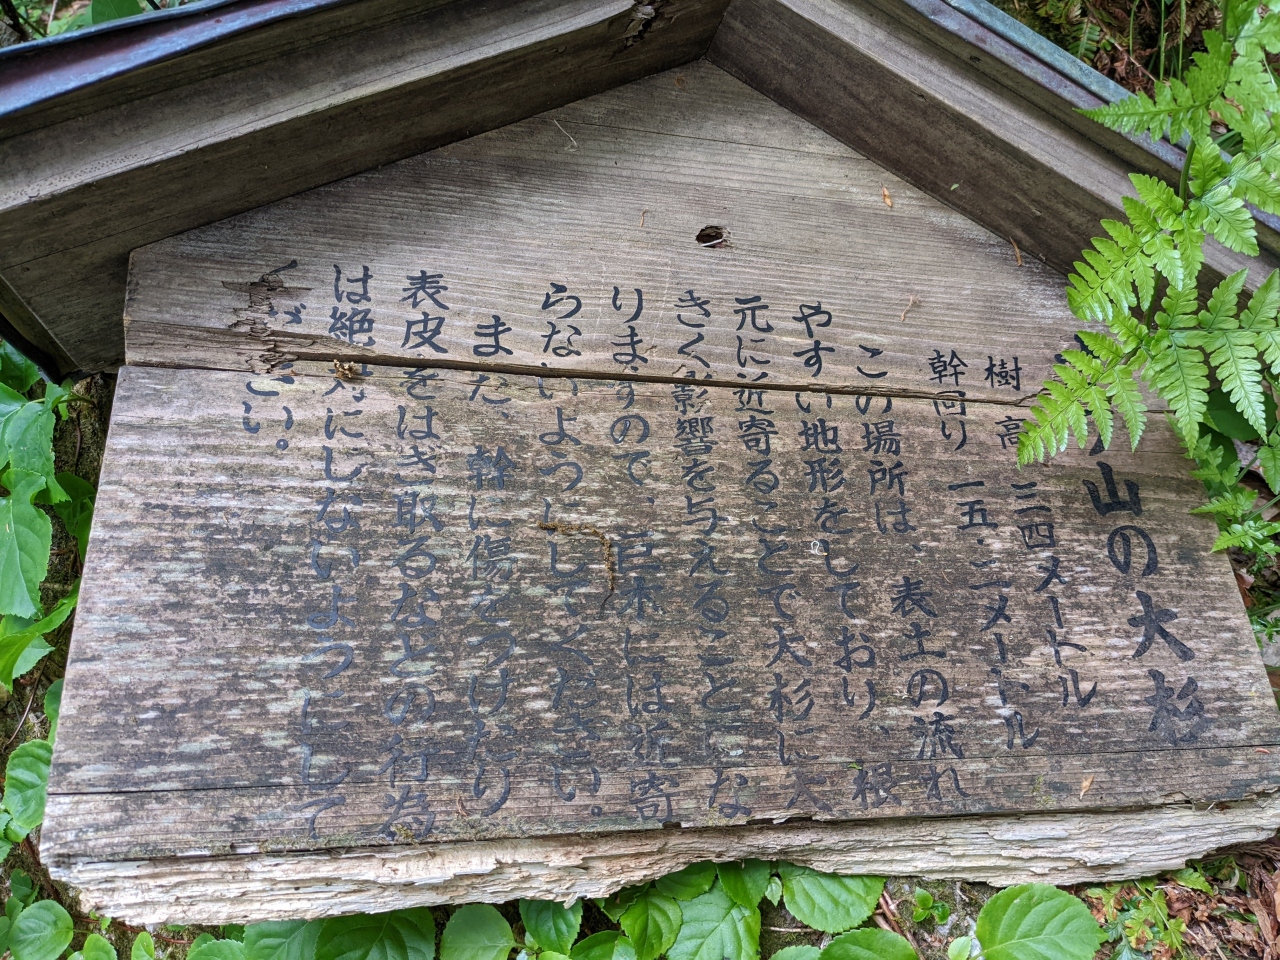 山の大杉
樹高 三四メートル
幹回り 一五・二メートル
この場所は、表土の流れ
やすい地形をしており、根
元に近寄ることで大杉に大
きく影響を与えることにな
りますので、巨木には近寄
らないようにしてください。
また、幹に傷をつけたり
表皮をはぎ取るなどの行為
は絶対にしないようにして
ください。